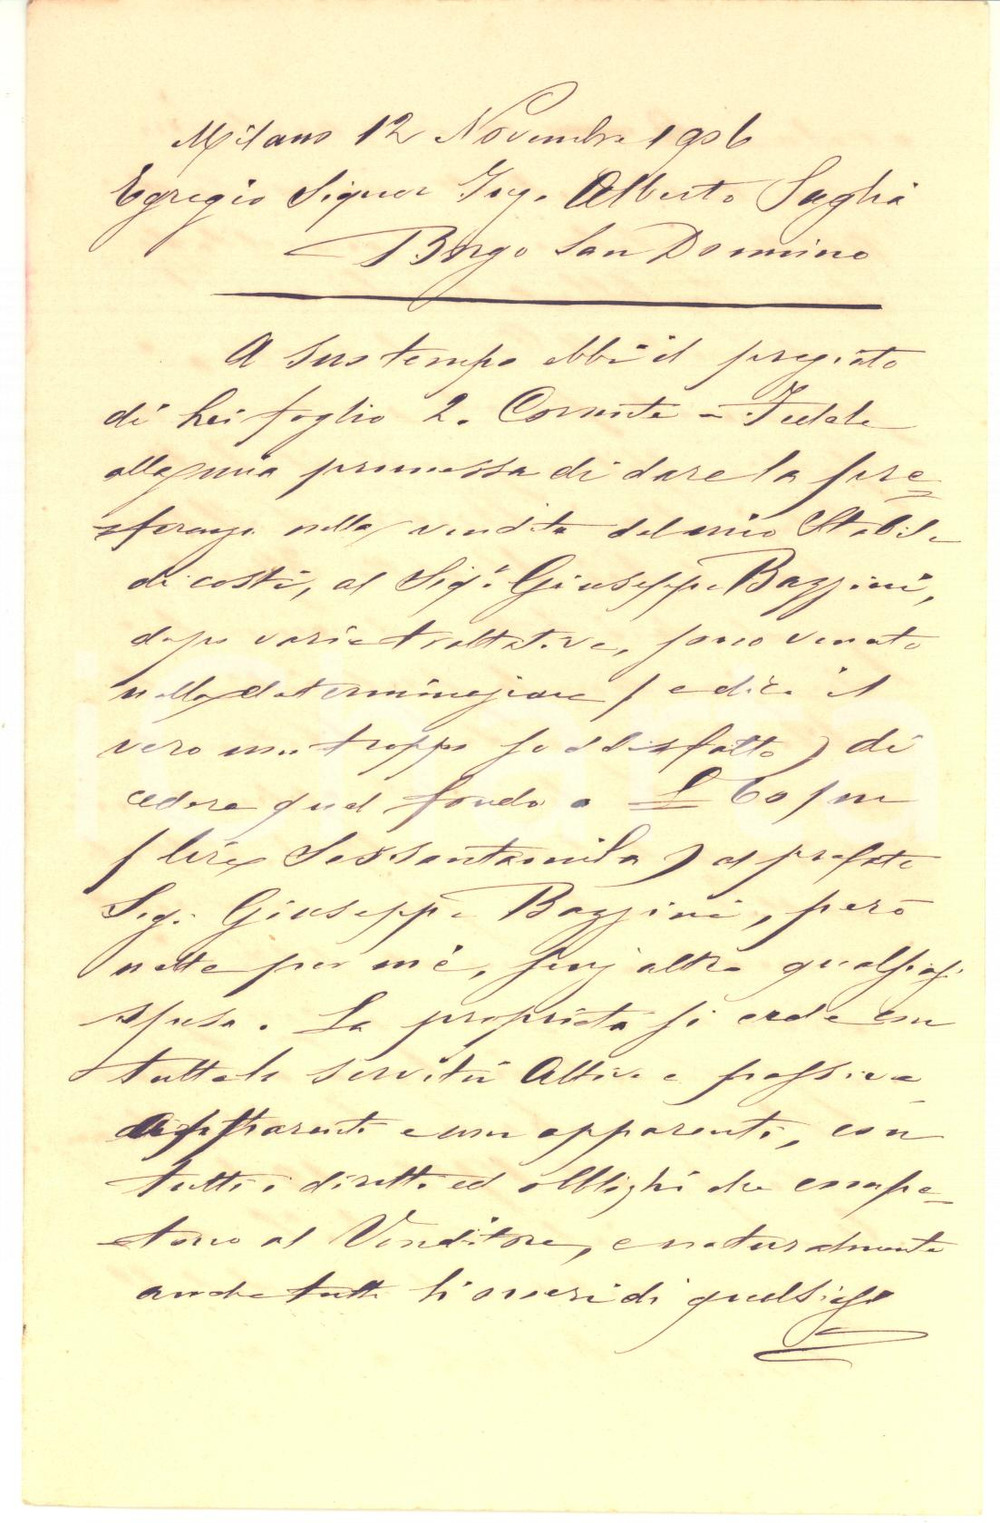 Milano 12 Novembre 1906
Egregio Signor Ing. Alberto Saglia
Borgo San Donnino
A suo tempo ebbi il pregiato
di Lei foglio 2. Corrente - Fedele
alla mia promessa di dare la pre=
=ferenza nella vendita del mio Stabile
di costì, al Sig.r Giuseppe Bazzini,
dopo varie trattative, sono venuto
nella determinazione (e dico il
vero non troppo soddisfatto) di
cedere quel fondo a L 60/m
(lire Sessantamila) al prefato
Sig. Giuseppe Bazzini, però
nette per mè, senz altra qualsiasi
spesa. La proprietà si cede con
tutte le servitù Attive e passive
apparenti e non apparenti, con
tutti i diritti ed obblighi che compe=
=tono al Venditore, e naturalmente
anche tutti li oneri di qualsiasi